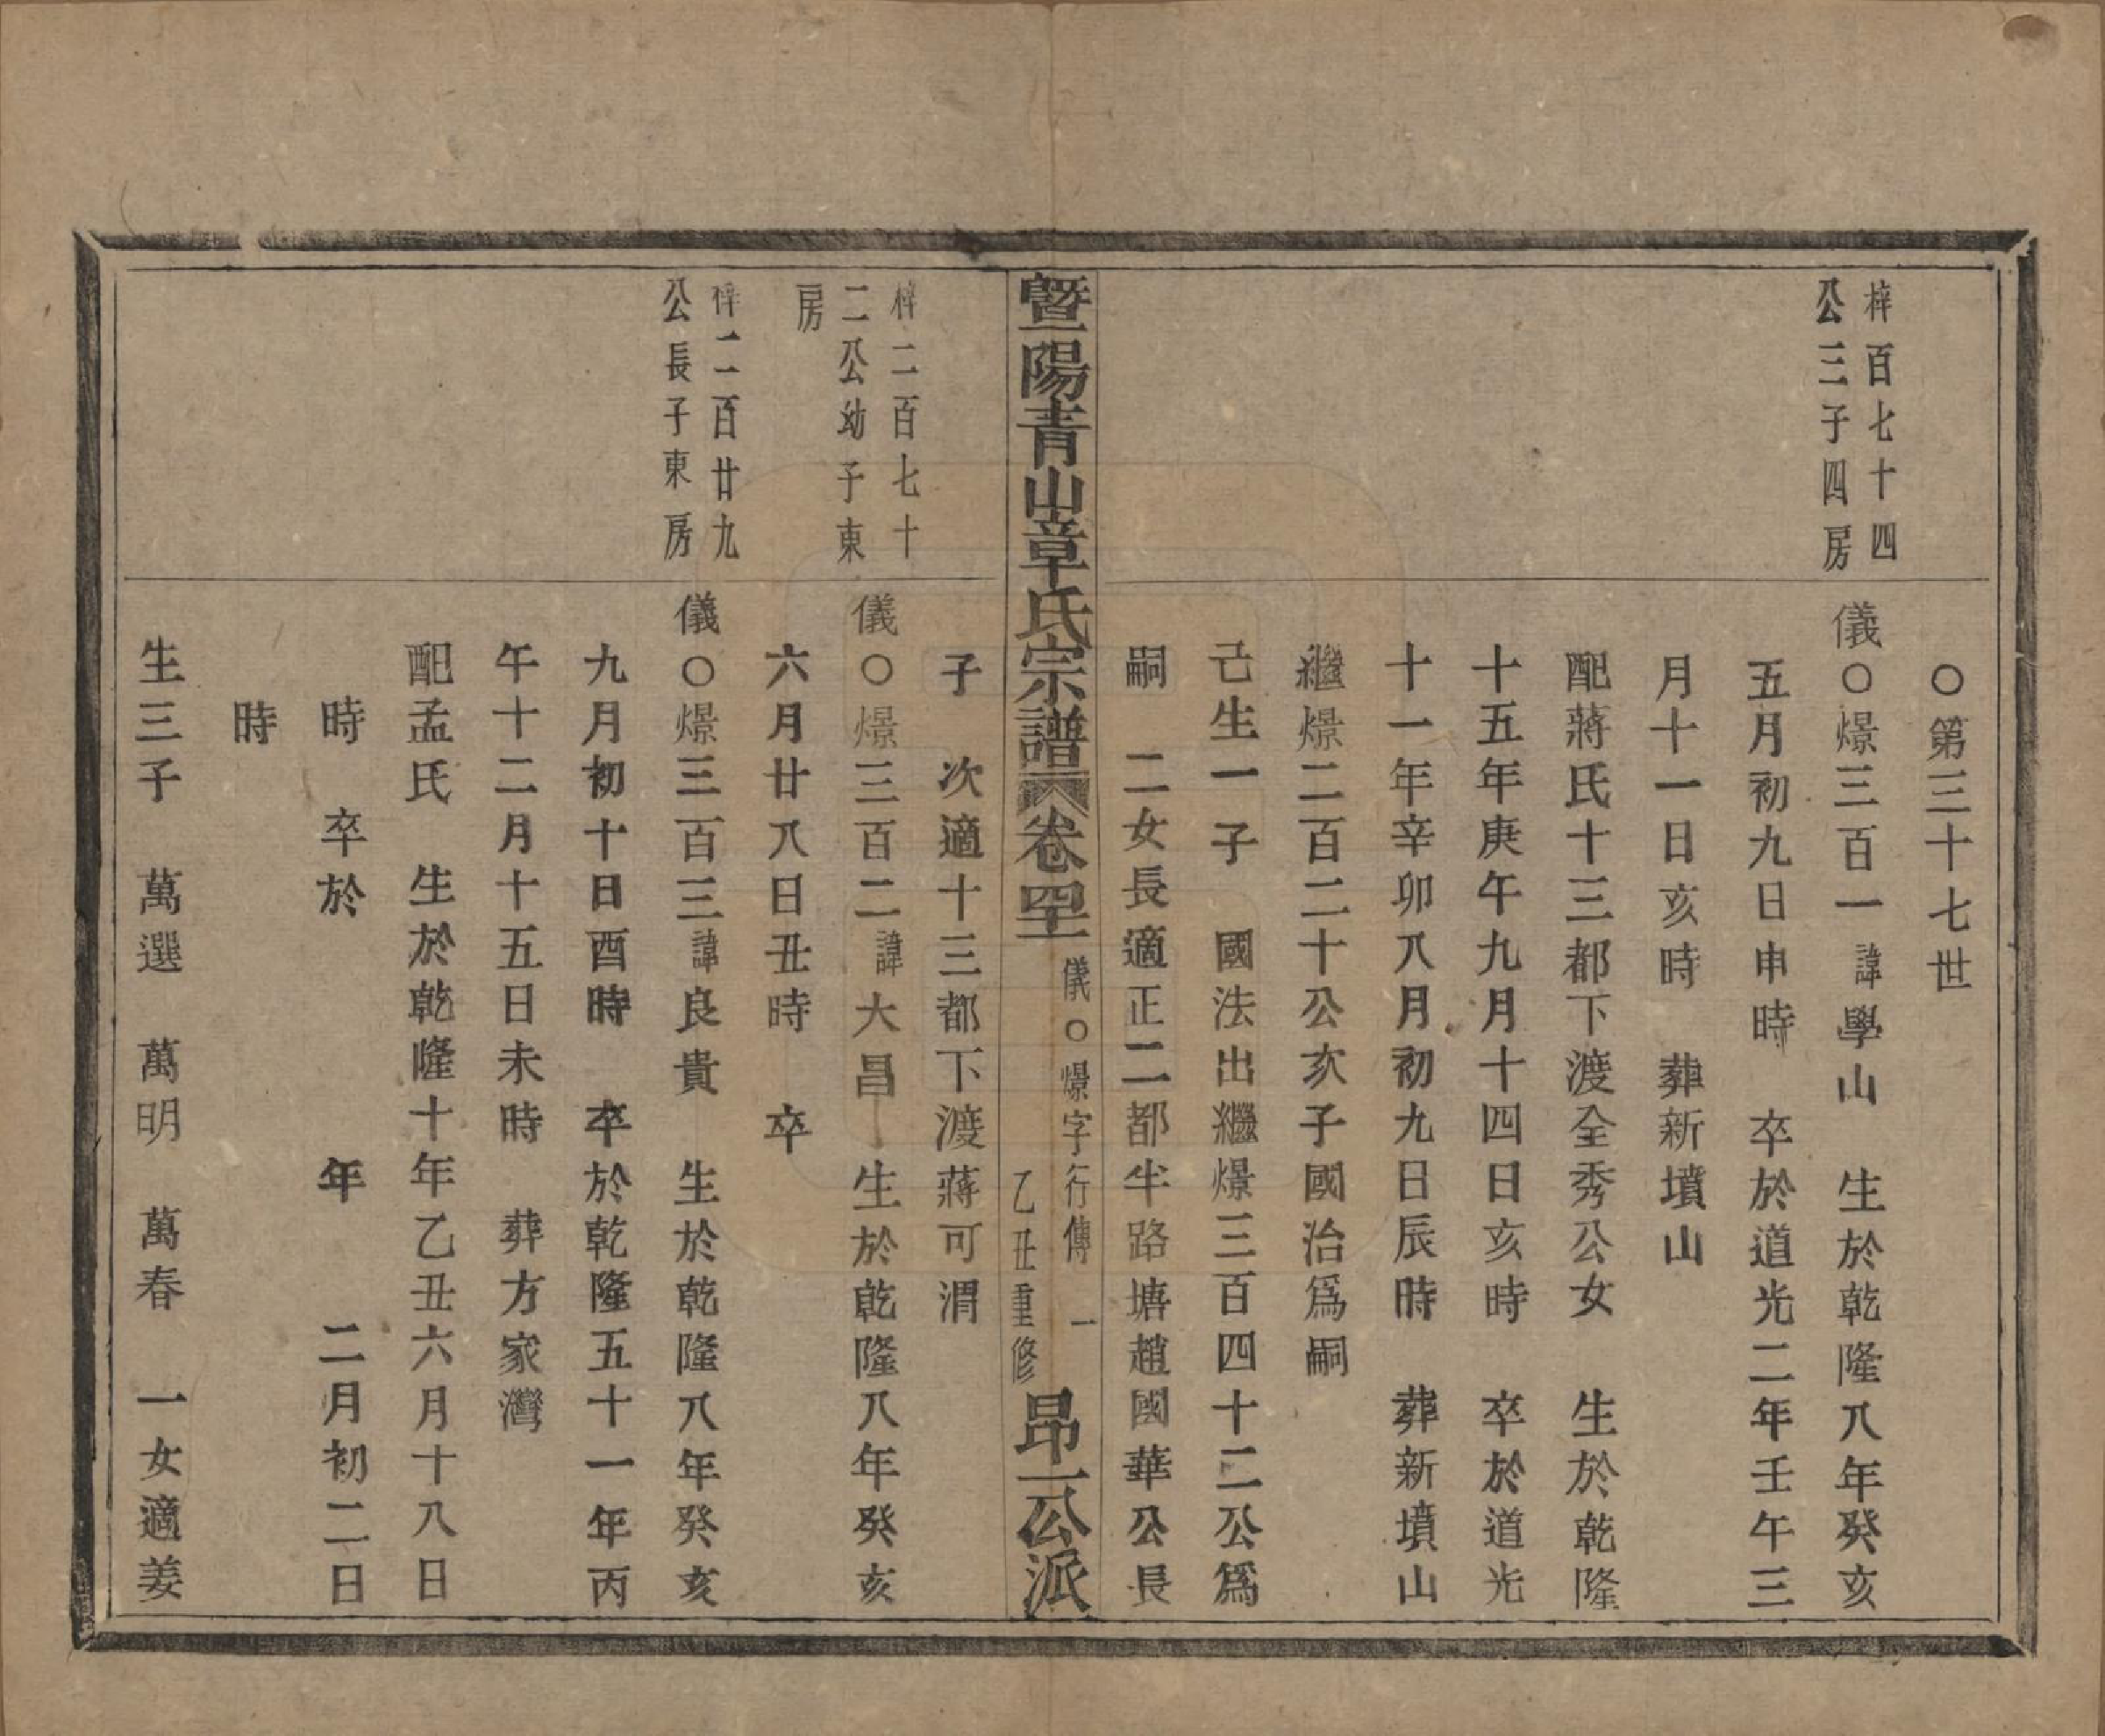 ○第三十七世
梓百七十四
公三子四房
儀○㬌三百一諱學山　生於乾隆八年癸亥
五月初九日申時　卒於道光二年壬午三
月十一日亥時　葬新墳山
配蔣氏十三都下渡全秀公女　生於乾隆
十五年庚午九月十四日亥時　卒於道光
十一年辛卯八月初九日辰時　葬新墳山
繼㬌二百二十公次子國治爲嗣
己生一子　國法出繼㬌三百四十二公爲
嗣　二女長適正二都半路塘趙國華公長
暨陽青山章氏宗譜　卷四十一　儀○㬌字行傳　一　乙丑重修　昂一公派
子　次適十三都下渡蔣可渭
梓二百七十
二公幼子東
房
儀○㬌三百二諱大昌　生於乾隆八年癸亥
六月廿八日丑時　卒
梓二百廿九
公長子東房
儀○㬌三百三諱良貴　生於乾隆八年癸亥
九月初十日酉時　卒於乾隆五十一年丙
午十二月十五日未時　葬方家灣
配孟氏　生於乾隆十年乙丑六月十八日
時　卒於　年　二月初二日
時
生三子　萬選　萬明　萬春　一女適姜